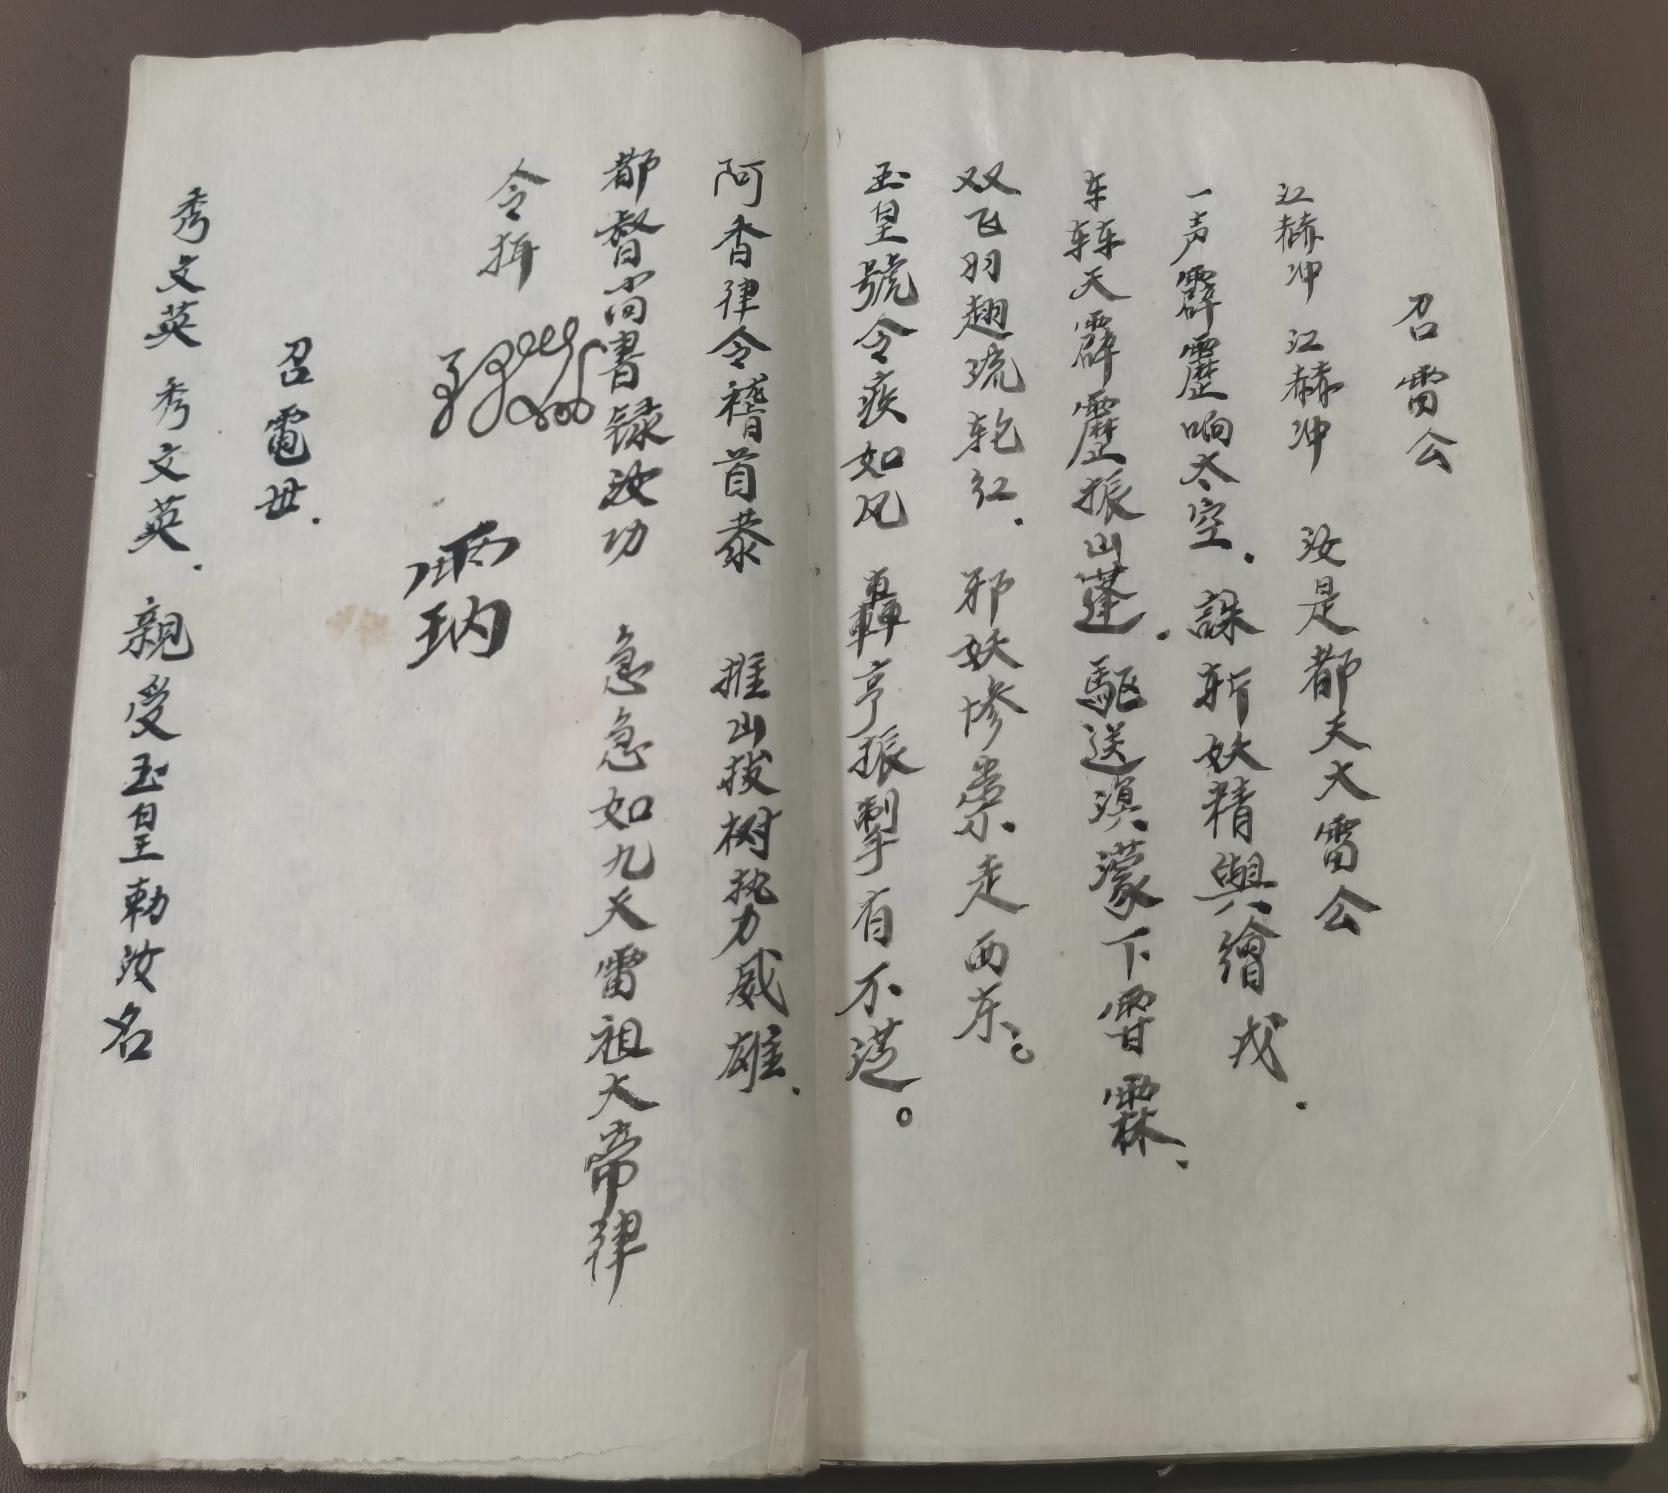 召雷公
江赫冲 江赫冲 汝是都天大雷公
一声霹雳响太空．誅斩妖精與繒 戎．
车轰天霹雳振山蓬．驱送溟濛下霄霖．
双飞羽翅琉轮红．邪妖惨祟走西东。
玉皇號令疾如风 轟亨振掣有不
阿香律令稽首恭 推山拔树势威雄．
都督尚書録汝功 急急如九天雷祖大帝律
令
召電母．
秀文英 秀文英．親受玉皇勅汝名